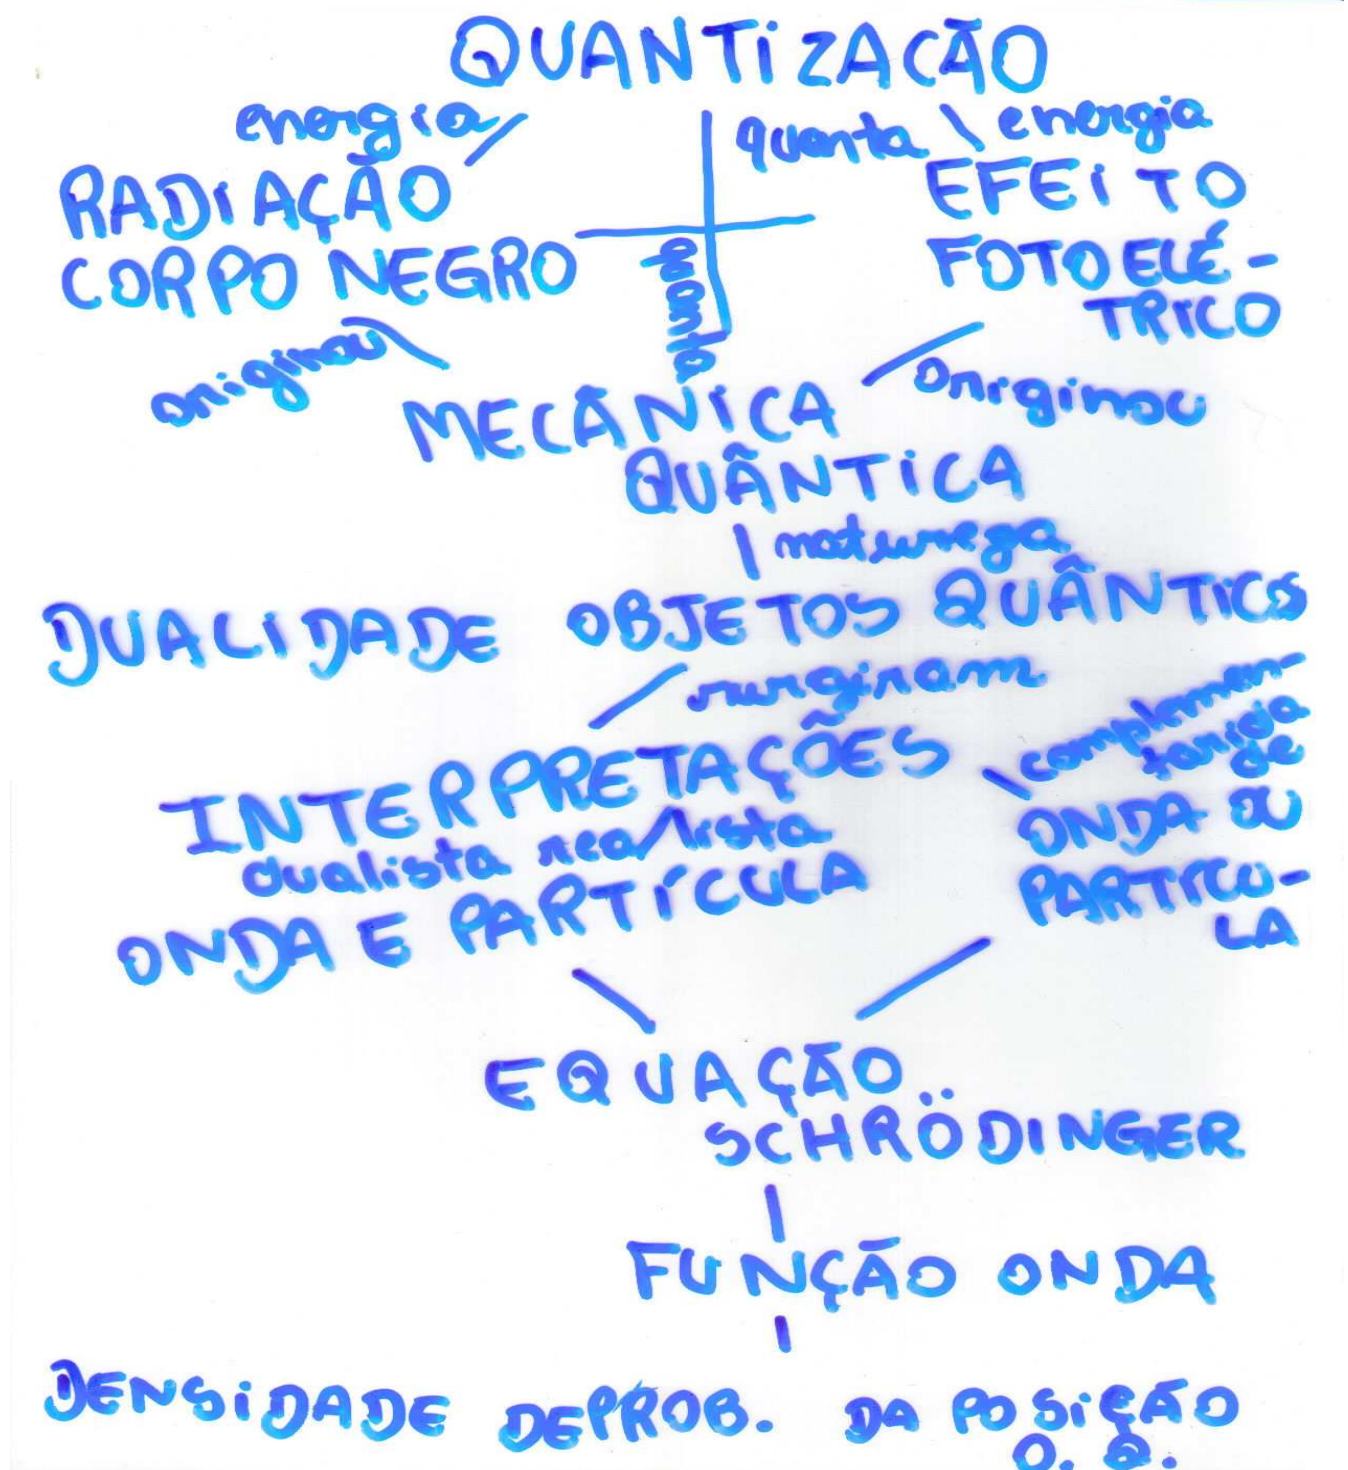 QUANTIZAÇÃO
energia quanta energia
RADIAÇÃO EFEITO
CORPO NEGRO quanta FOTOELÉ-
TRICO
originou originou
MECÂNICA
QUÂNTICA
natureza
DUALIDADE OBJETOS QUÂNTICOS
surgiram
INTERPRETAÇÕES
complemen-
tarida
de
dualista realista
ONDA E PARTÍCULA
ONDA OU
PARTÍCU-
LA
EQUAÇÃO
SCHRÖDINGER
FUNÇÃO ONDA
DENSIDADE DE PROB. DA POSIÇÃO
O. Q.